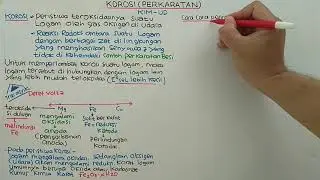 KOROSI (PERKARATAN)
KIM-UD
KOROSI → peristiwa teroksidanya suatu
Logam oleh gas oksigen di Udara
→ Reaksi Redoks antara suatu Logam
dengan berbagai zat di lingkungan
yang menghasilkan Senyawa2 yang
tidak di kehendaki Contoh perkaratan Besi
Untuk memperlambat korosi suatu logam, maka
logam tersebut di hubungkan dengan logam lain
Deret Volta
Mg Fe Cu
teroksidasi
duluan
melindungi
Fe
mengalami
oksidasi
anoda
sulit berkarat
Fe = reduksi
katoda
Cara Cara
pada peristiwa Korosi
Logam mengalami oksidasi, Sedangkan oksigen
(Udara) akan mengalami reduksi. Karat logam
Umumnya berupa Oksida atau Karbonat
Rumus Kimia Karat Fe2O3.xH2O